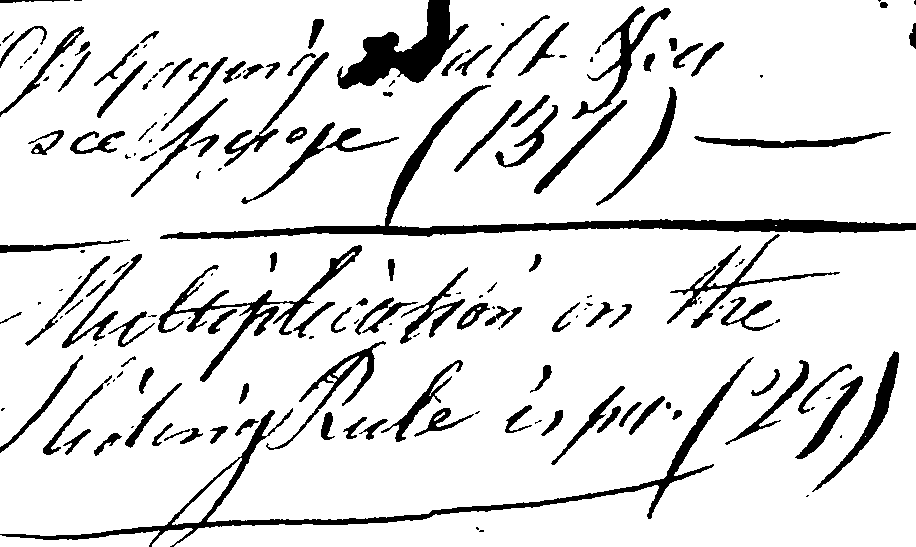 Of Gaging Malt Via
see page (137)
Multiplication on the
Sliding Rule is pa. (29)